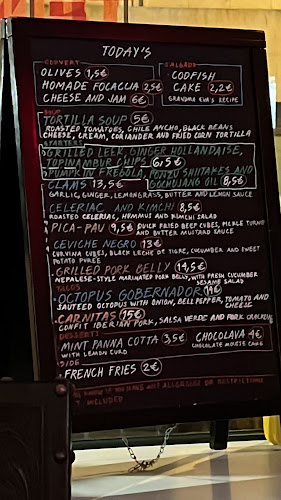 TODAY'S
COUVERT
OLIVES 1,5€
HOMADE FOCACCIA 2,5€
CHEESE AND JAM 6€
SALGADO
CODFISH
CAKE 2,2€
GRANDMA EVA'S RECIPE
SOUP
TORTILLA SOUP 5€
ROASTED TOMATOES, CHILE ANCHO, BLACK BEANS
CHEESE, CREAM, CORIANDER AND FRIED CORN TORTILLA
STARTERS
GRILLED LEEK, GINGER HOLLANDAISE,
TOPINAMBUR CHIPS 6,5€
PUMPKIN FREGOLA, PONZU SHIITAKES AND
GOCHUJANG OIL 8,5€
CLAMS 13,5€
GARLIC, GINGER, LEMONGRASS, BUTTER AND LEMON SAUCE
CELERIAC AND KIMCHI 8,5€
ROASTED CELERIAC, HUMMUS AND KIMCHI SALAD
PICA-PAU 9,5€ QUICK FRIED BEEF CUBES, PICKLE TURNIP
AND BUTTER MUSTARD SAUCE
CEVICHE NEGRO 13€
CORVINA CUBES, BLACK LECHE DE TIGRE, CUCUMBER AND SWEET
POTATO PUREE
GRILLED PORK BELLY 14,5€
NEPALESE-STYLE MARINATED PORK BELLY, WITH FRESH CUCUMBER
SESAME SALAD
TACOS
OCTOPUS GOBERNADOR 14€
SAUTEED OCTOPUS WITH ONION, BELL PEPPER, TOMATO AND
CHEESE
CARNITAS 15€
CONFIT IBERIAN PORK, SALSA VERDE AND PORK CRACKLING
DESSERTS
MINT PANNA COTTA 3,5€
WITH LEMON CURD
CHOCOLAVA 4€
CHOCOLATE MOIST CAKE
SIDE
FRENCH FRIES 2€
IF YOU HAVE ANY ALLERGIES OR RESTRICTIONS
INCLUDED